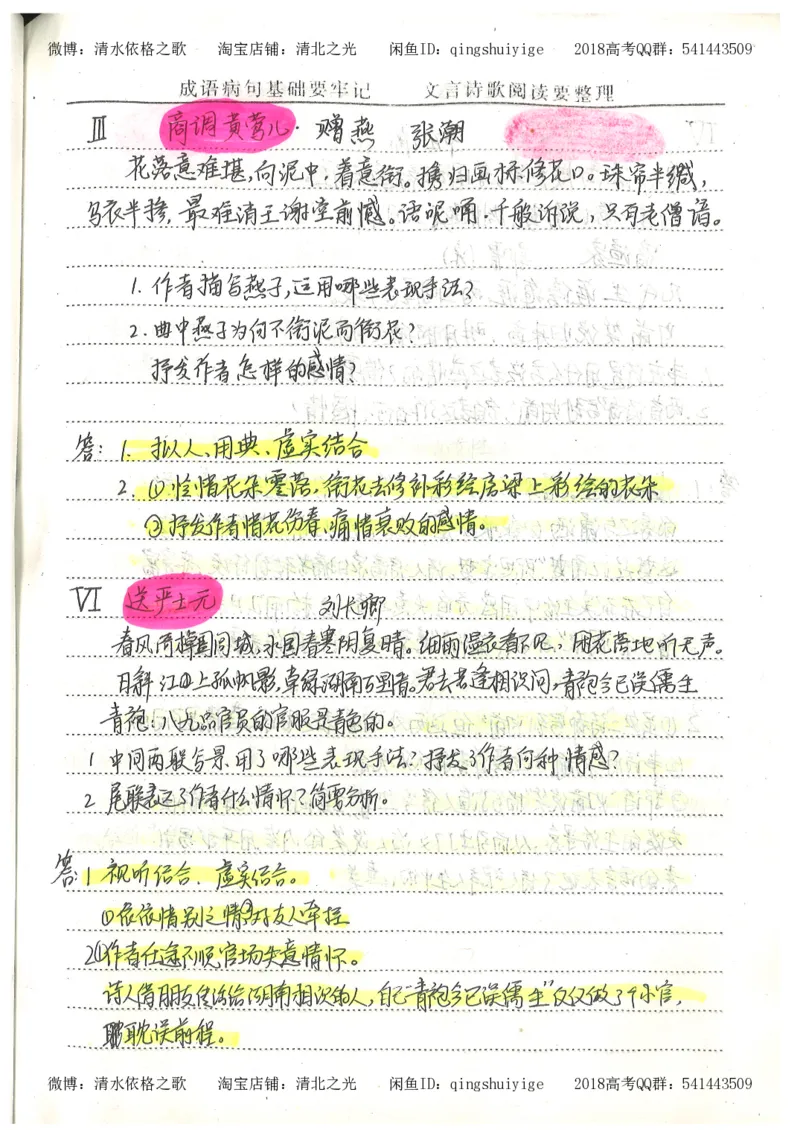 微博：清水依格之歌 淘宝店铺：清北之光 闲鱼ID：qingshuiyige 2018高考QQ群：541443509
成语病句基础要牢记 文言诗歌阅读要整理
Ⅲ 商调黄莺儿·赠燕 张潮
花落意难堪，向泥中，着意衔。携归画栋修花口。珠帘半缄，
乌衣半掺，最难消王谢堂前憾。话呢喃，千般诉说，只有老僧谙。
1. 作者描写燕子，运用哪些表现手法？
2. 曲中燕子为何不衔泥而衔花？
抒发作者怎样的感情？
答：1. 拟人、用典、虚实结合
2. ①怜惜花朵零落，衔花去修补彩绘房梁上彩绘的花朵
②抒发作者惜花伤春、痛惜衰败的感情。
Ⅵ 送严士元 刘长卿
春风倚棹阖闾城，水国春寒阴复晴。细雨湿衣看不见，闲花落地听无声。
日斜江上孤帆影，草绿湖南万里情。君去若逢相识问，青袍今已误儒生
青袍：八九品官员的官服是青色的。
1 中间两联写景用了哪些表现手法？抒发了作者何种情感？
2 尾联表达了作者什么情怀？简要分析。
答：1 视听结合、虚实结合。
①依依惜别之情②对友人牵挂
2①作者仕途不顺官场失意情怀。
诗人借朋友传话给湖南相识的人，自己“青袍今已误儒生”仅仅做了个小官，
耽误前程。
微博：清水依格之歌 淘宝店铺：清北之光 闲鱼ID：qingshuiyige 2018高考QQ群：541443509